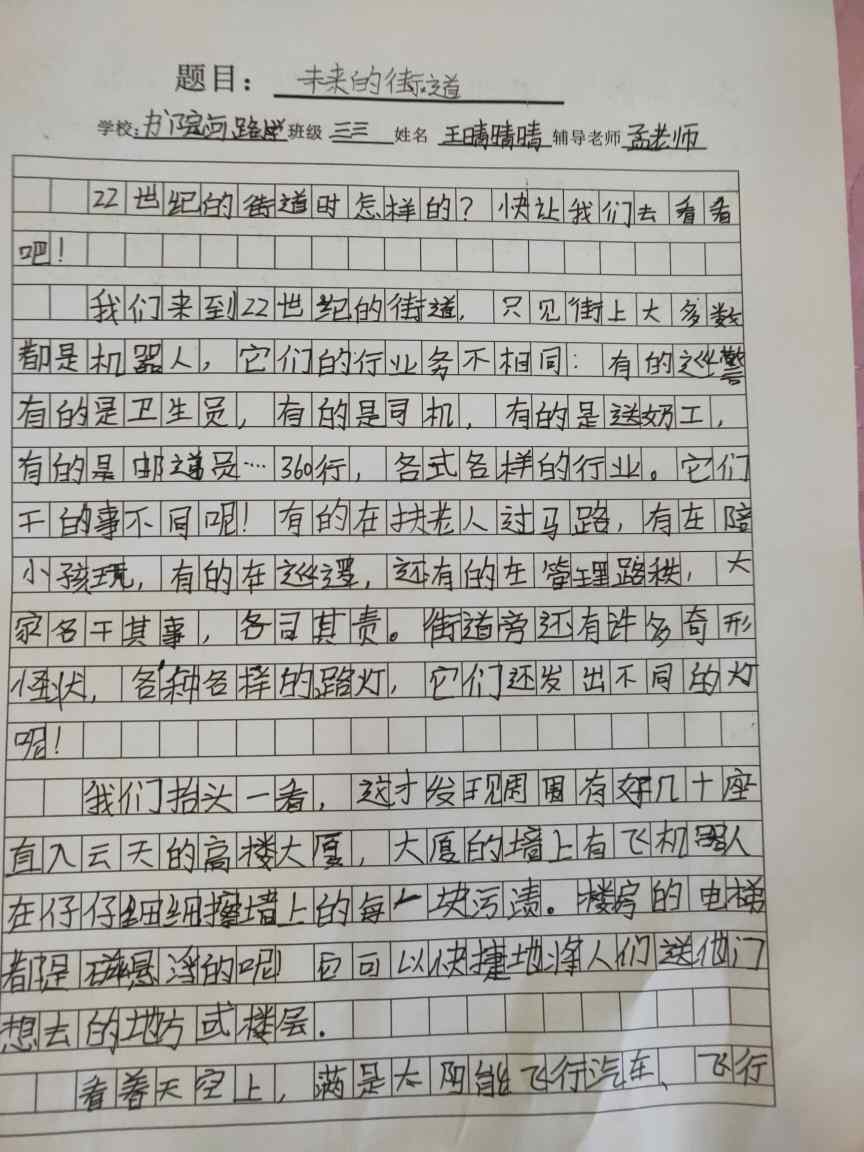 题目：未来的街道
学校：书院河路小学 班级 三三 姓名 王晴晴晴 辅导老师 孟老师
22世纪的街道时怎样的？快让我们去看看
吧！
我们来到22世纪的街道，只见街上大多数
都是机器人，它们的行业务不相同：有的巡警
有的是卫生员，有的是司机，有的是送奶工，
有的是邮道员…360行，各式各样的行业。它们
干的事不同呢！有的在扶老人过马路，有在陪
小孩玩，有的在巡逻，还有的在管理路秩，大
家各干其事，各司其责。街道旁还有许多奇形
怪状，各种各样的路灯，它们还发出不同的灯
呢！
我们抬头一看，这才发现周围有好几十座
直入云天的高楼大厦，大厦的墙上有飞机器人
在仔仔细细擦墙上的每一块污渍。楼房的电梯
都是磁悬浮的呢！它可以快捷地将人们送他门
想去的地方或楼层．
看着天空上，满是太阳能飞行汽车、飞行